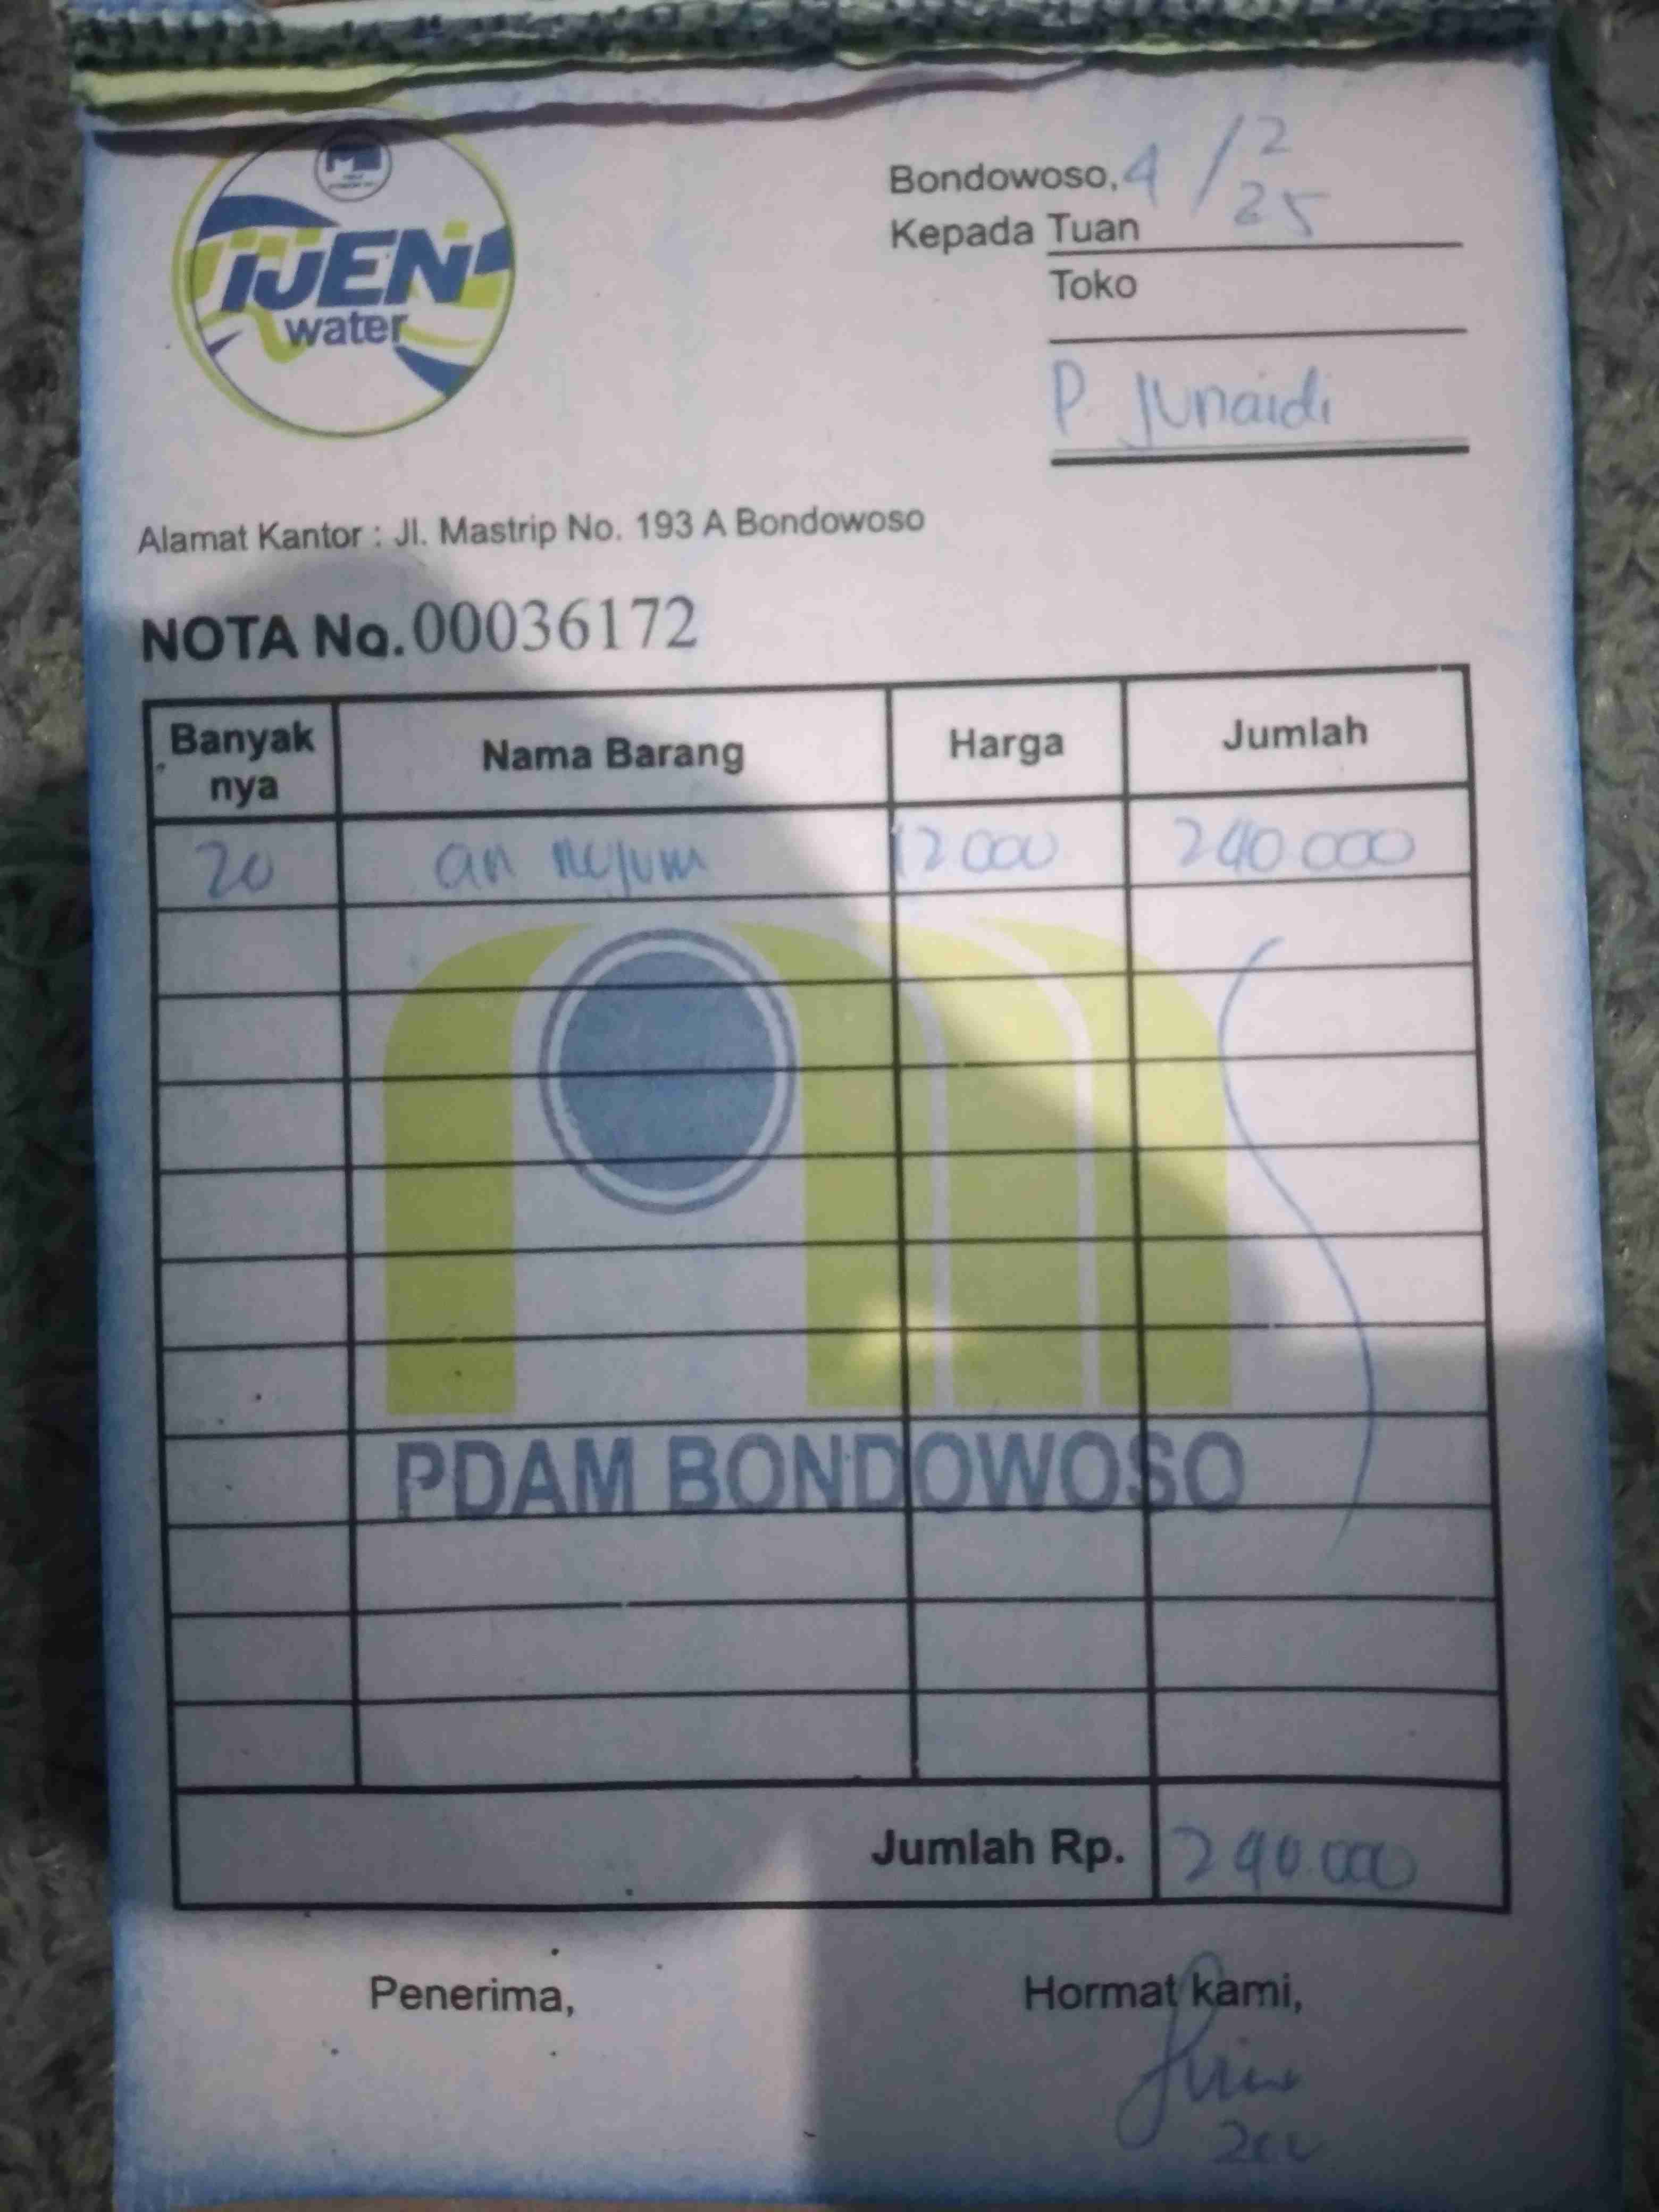 IJEN
water
Bondowoso, 4/2 25
Kepada Tuan
Toko
P Junaidi
Alamat Kantor : Jl. Mastrip No. 193 A Bondowoso
NOTA No. 00036172
Banyak nya Nama Barang Harga Jumlah
20 an 12 000 240 000
PDAM BONDOWOSO
Jumlah Rp. 240.000
Penerima, Hormat kami,